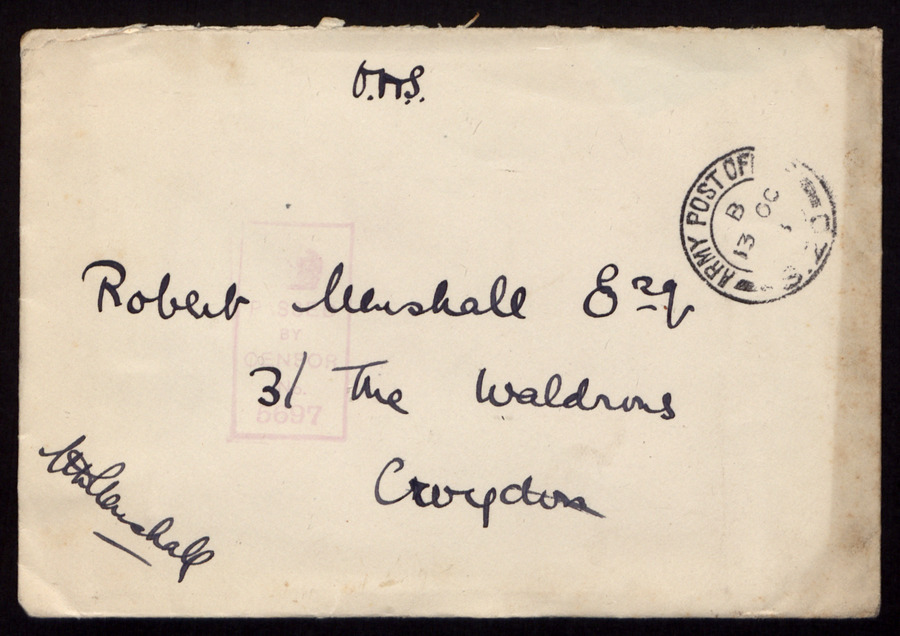 O.A.S.
ARMY POST OF
B
13 OC
Robert Marshall Esq
31 The Waldrons
Croydon
PASSED
BY
CENSOR
No.
5697
Marshall